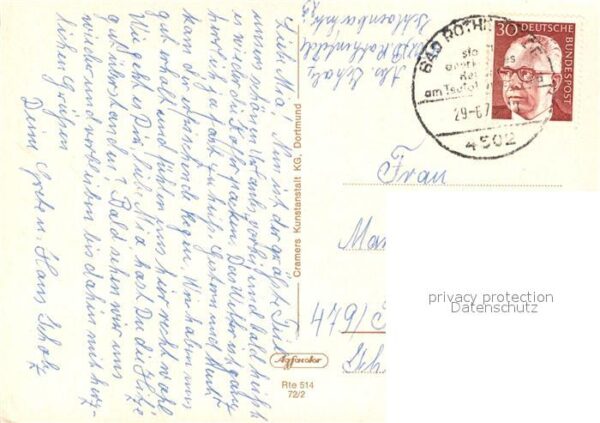 Liebe Mia! Nun ist der größte Teil
unseres Urlaubs vorbei und bald heißt
es wieder die Koffer packen. Das Wetter ist ganz
herrlich, fast zu heiß. Gestern und Nacht
kam der erfrischende Regen. Wir haben uns
gut erholt und fühlen uns hier recht wohl
Wie geht es Dir, liebe Mia hast Du die Hitze
gut überstanden? Bald sehen wir uns
wieder und verbleiben bis dahin mit herz-
lichen Grüßen
Deine Grete u. Hans Scholz
Abs. Scholz
4502 Bad Rothenfelde
Cramers Kunstanstalt KG. Dortmund
Agfacolor
Rte 514
72/2
BAD ROTH
am Teuto
29-6.7
4502
30 DEUTSCHE
BUNDESPOST
Frau
479/
privacy protection
Datenschutz